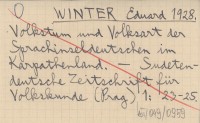 O WINTER Eduard 1928.
Volkstum und Volksart der
Sprachinseldeutschen im
Karpathenland. — Sudeten-
deutsche Zeitschrift für
Volkskunde (Prag) 1: 23-25.